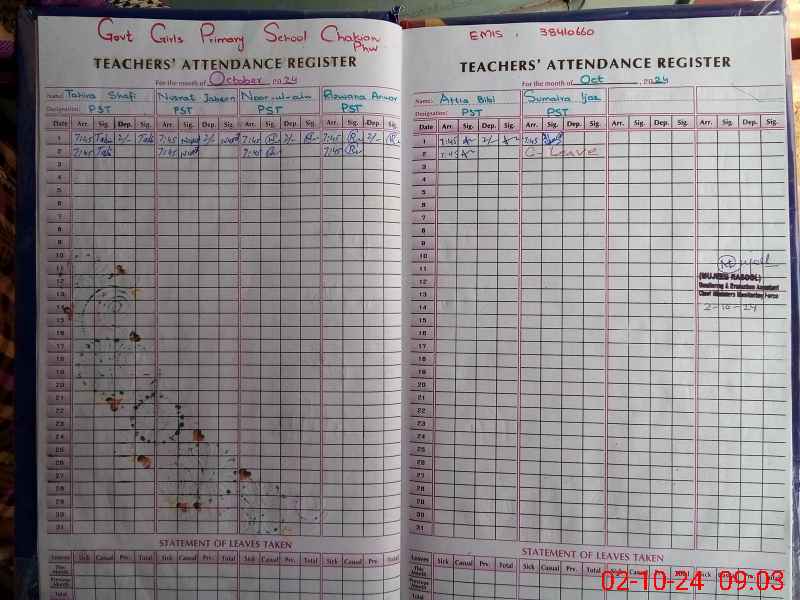 Govt Girls Primary School Chakian
Phw
TEACHERS' ATTENDANCE REGISTER
For the month of October, 2024
Name: Tahira Shafi Nusrat Jabeen Noor-ul-ain Rizwana Anwar
Designation: PST PST PST PST
Date Arr. Sig. Dep. Sig. Arr. Sig. Dep. Sig. Arr. Sig. Dep. Sig. Arr. Sig. Dep. Sig.
1 7:45 2/- 7:45 2/- 7:45 2/- 7:45 2/-
2 7:45 7:45 7:45 7:45
3
4
5
6
7
8
9
10
11
12
13
14
15
16
17
18
19
20
21
22
23
24
25
26
27
28
29
30
31
STATEMENT OF LEAVES TAKEN
Leaves Sick Casual Prv. Total Sick Casual Prv. Total Sick Casual Prv. Total Sick Casual Prv. Total
This Month
Previous Month
EMIS . 38410660
TEACHERS' ATTENDANCE REGISTER
For the month of Oct, 2024
Name: Attia Bibi Sumaira Ijaz
Designation: PST PST
Date Arr. Sig. Dep. Sig. Arr. Sig. Dep. Sig. Arr. Sig. Dep. Sig. Arr. Sig. Dep. Sig.
1 7:45 2/- 7:45
2 7:45 C-Leave
3
4
5
6
7
8
9
10
11
12
13
14
15
16
17
18
19
20
21
22
23
24
25
26
27
28
29
30
31
(MUJEEB RASOOL)
Monitoring & Evaluation Assistant
Chief Minister's Monitoring Force
2-10-24
STATEMENT OF LEAVES TAKEN
Leaves Sick Casual Prv. Total Sick Casual Prv. Total Sick Casual Prv. Total Sick Casual Prv. Total
This Month
Previous Month
02-10-24 09:03